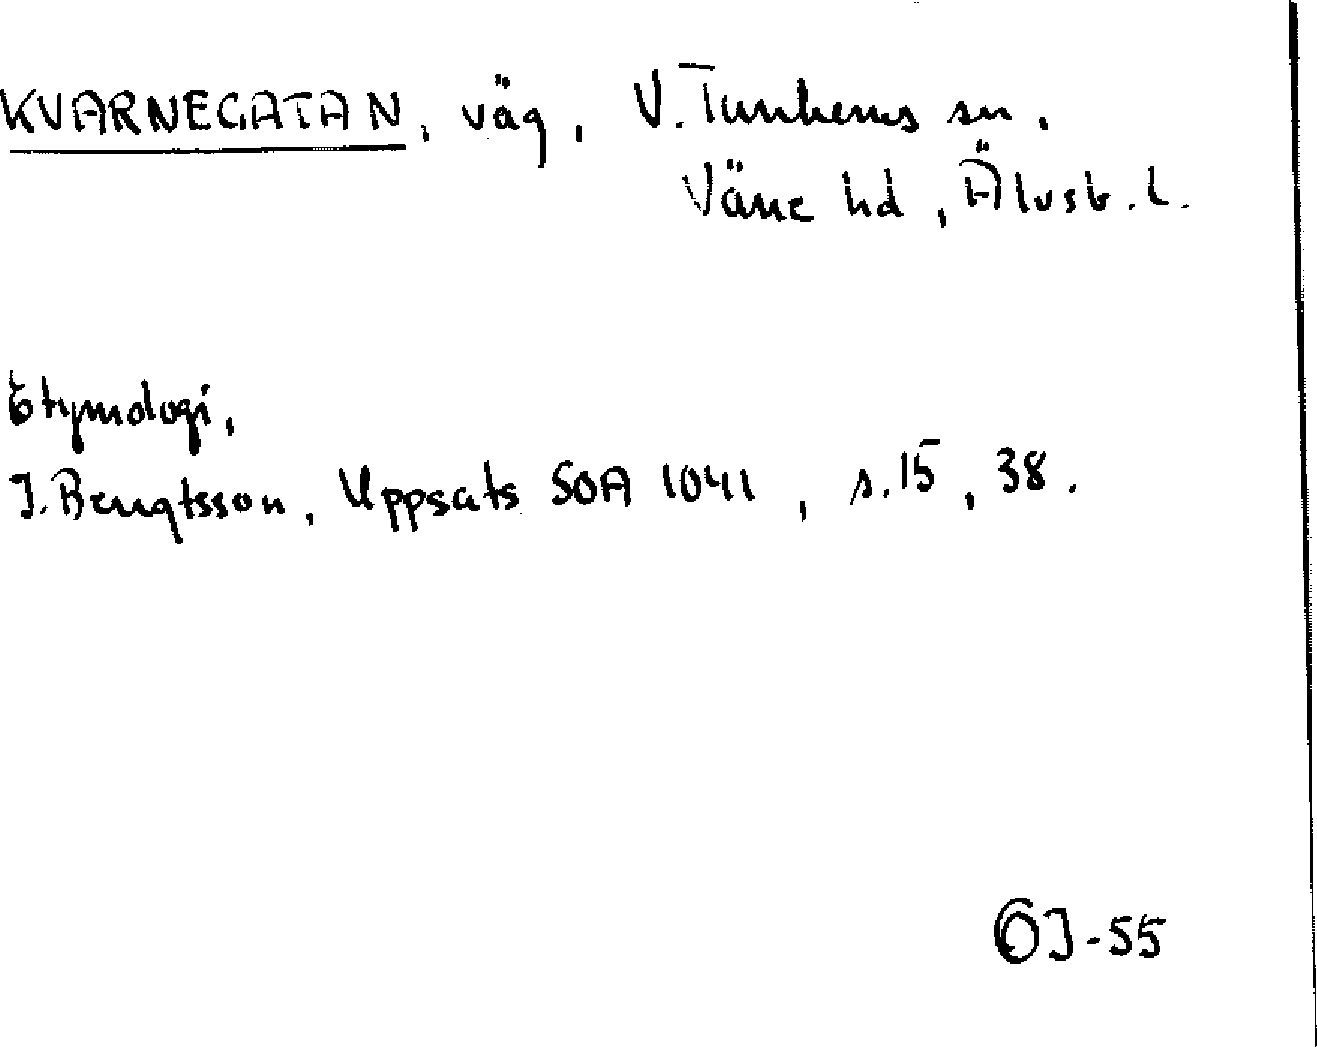 KVARNEGATAN, väg, V. Tunhems sn,
Väne hd, Älvsb. l.
Etymologi,
J. Bengtsson, Uppsats SOA 1041, s. 15, 38.
ÖJ-55